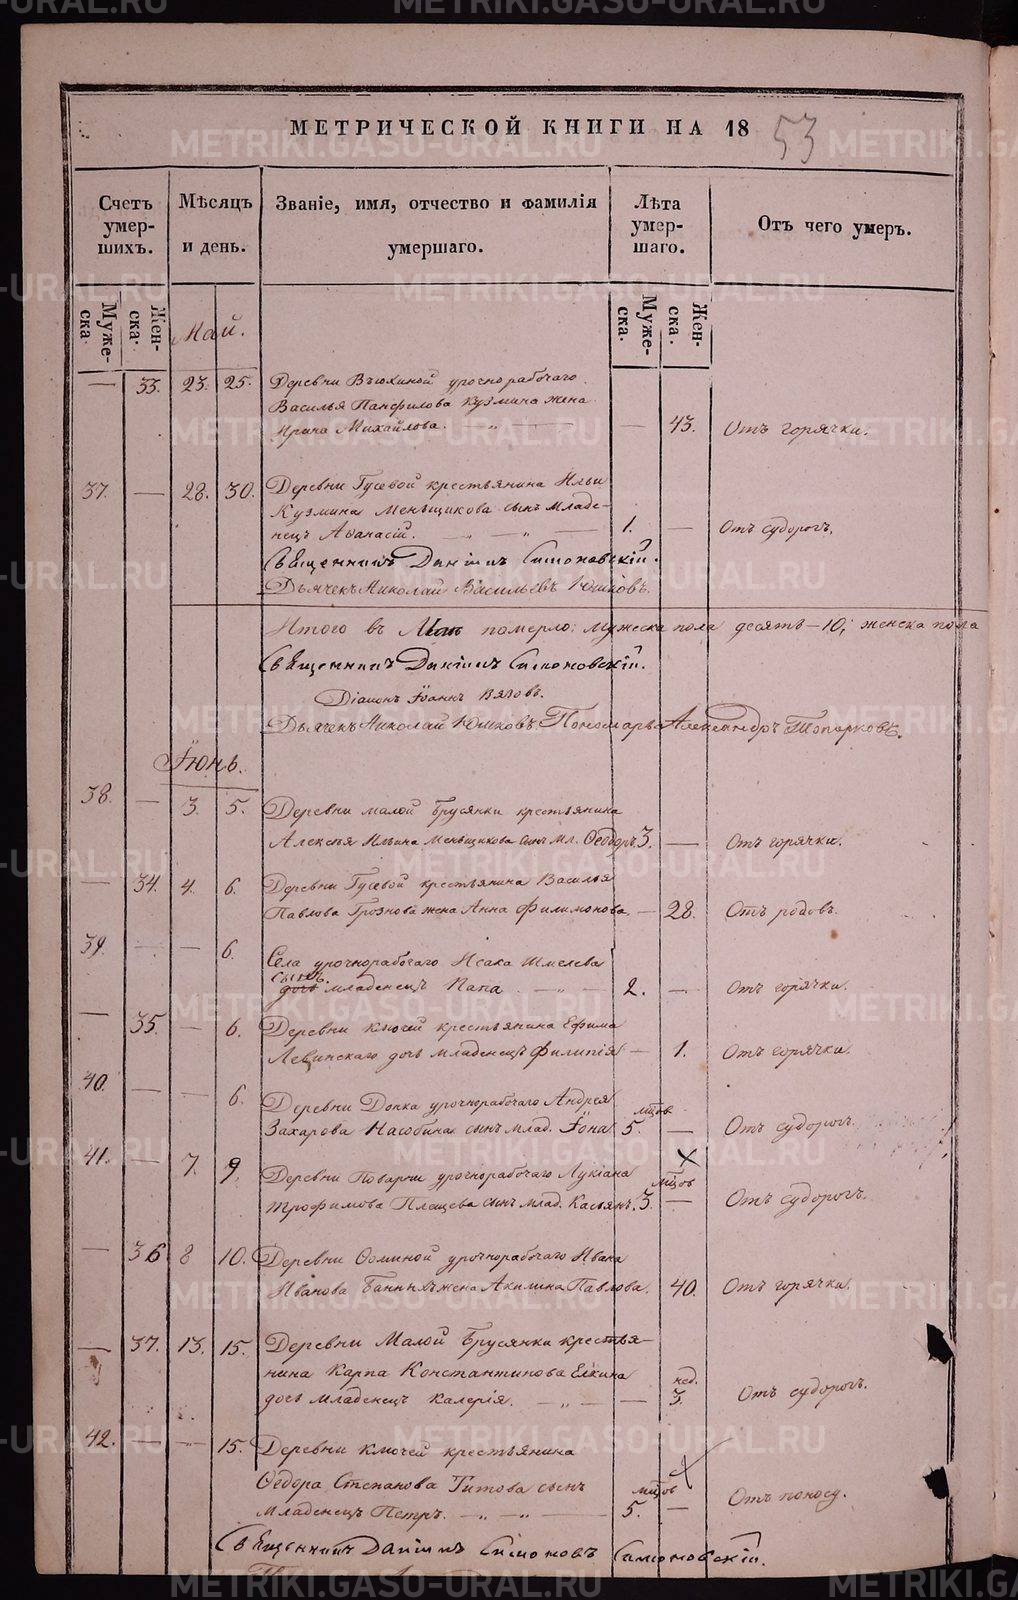 МЕТРИЧЕСКОЙ КНИГИ НА 18 53
Счетъ умер-шихъ.
Мѣсяцъ и день.
Званіе, имя, отчество и фамилія умершаго.
Лѣта умер-шаго.
Отъ чего умеръ.
Муже-ска.
Жен-ска.
Муже-ска.
Жен-ска.
Май.
— 33. 23. 25. Деревни Вьюхиной урочнорабочаго
Василья Панфилова Кузмина жена
Ирина Михайлова. — 43. Отъ горячки.
37. — 28. 30. Деревни Гусевой крестьянина Ильи
Кузмина Меньщикова сынъ младе-
нецъ Аѳанасій. 1. — Отъ судорогъ.
Священникъ Даніилъ Симоновскій.
Дьячекъ Николай Васильевъ Юшковъ.
Итого въ Маѣ померло: мужеска пола десять — 10; женска пола
Священникъ Даніилъ Симоновскій.
Діаконъ Іоаннъ Вяловъ.
Дьячекъ Николай Юшковъ. Пономарь Александръ Топорковъ.
Іюнь.
38. — 3. 5. Деревни малой Брусянки крестьянина
Алексѣя Ильина Меньщикова сынъ мл. Ѳеодоръ. 3. — Отъ горячки.
— 34. 4. 6. Деревни Гусевой крестьянина Василья
Павлова Грознова жена Анна Филимонова — 28. Отъ родовъ.
39. — — 6. Села урочнорабочаго Исака Шмелева
сынъ
дочь младенецъ Папа 2. — Отъ горячки.
— 35. — 6. Деревни Ключей крестьянина Ефима
дочь младенецъ Филипія — 1. Отъ горячки.
40. — 6. Деревни урочнорабочаго Андрея
мцовъ
Захарова сынъ млад. Іона 5. — Отъ судорогъ.
41. — 7. 9. Деревни Поварни урочнорабочаго Лукіана
мцов
Трофимова Плащева сынъ млад. Касьянъ. 3. — Отъ судорогъ.
— 36 8 10. Деревни урочнорабочаго Ивана
Иванова жена Акилина Павлова. 40. Отъ горячки.
— 37. 13. 15. Деревни Малой Брусянки крестья-
нина Карпа Константинова Елкина
нед.
дочь младенецъ Калерія. — 3. Отъ судорогъ.
42. — — 15. Деревни Ключей крестьянина
Ѳедора Степанова Титова сынъ
мцов
младенецъ Петръ. 5. — Отъ поносу.
Священникъ Даніилъ Симоновъ Симоновскій.
METRIKI.GASO-URAL.RU